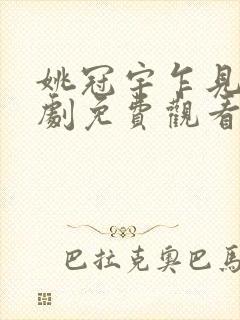 姚冠宇乍見
劇免費觀看
巴拉克奧巴馬